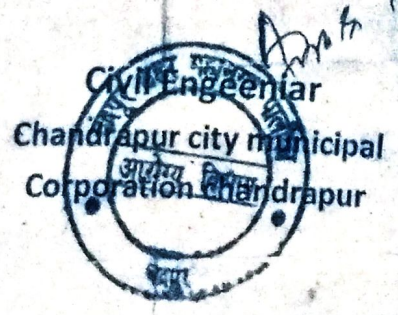 Civil Engeeniar
Chandrapur city municipal
Corporation Chandrapur
आरोग्य विभाग